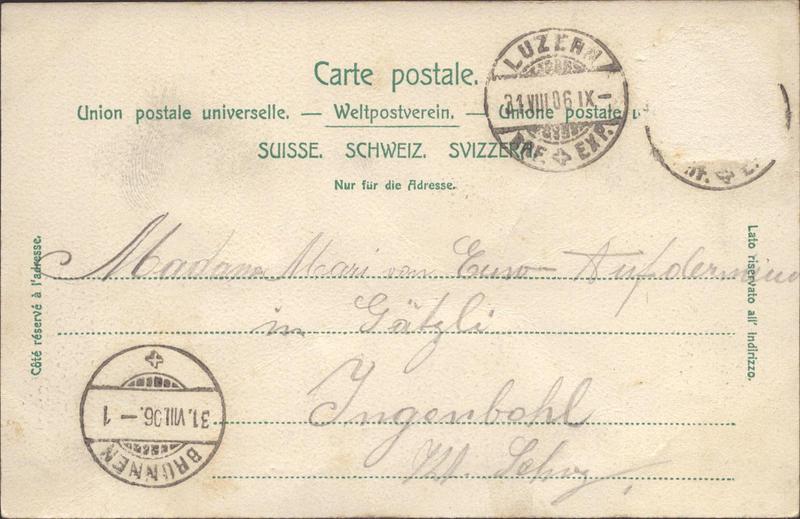 Carte postale.
Union postale universelle. — Weltpostverein. — Unione postale u
SUISSE. SCHWEIZ. SVIZZERA.
Nur für die Adresse.
LUZERN
31.VIII.06.IX–
BRF. EXP.
Côté réservé à l'adresse.
Lato riservato all' indirizzo.
Madame Mari von Euw
in Gätzli
Ingenbohl
Kt. Schwyz
BRUNNEN
31.VIII.06.–1